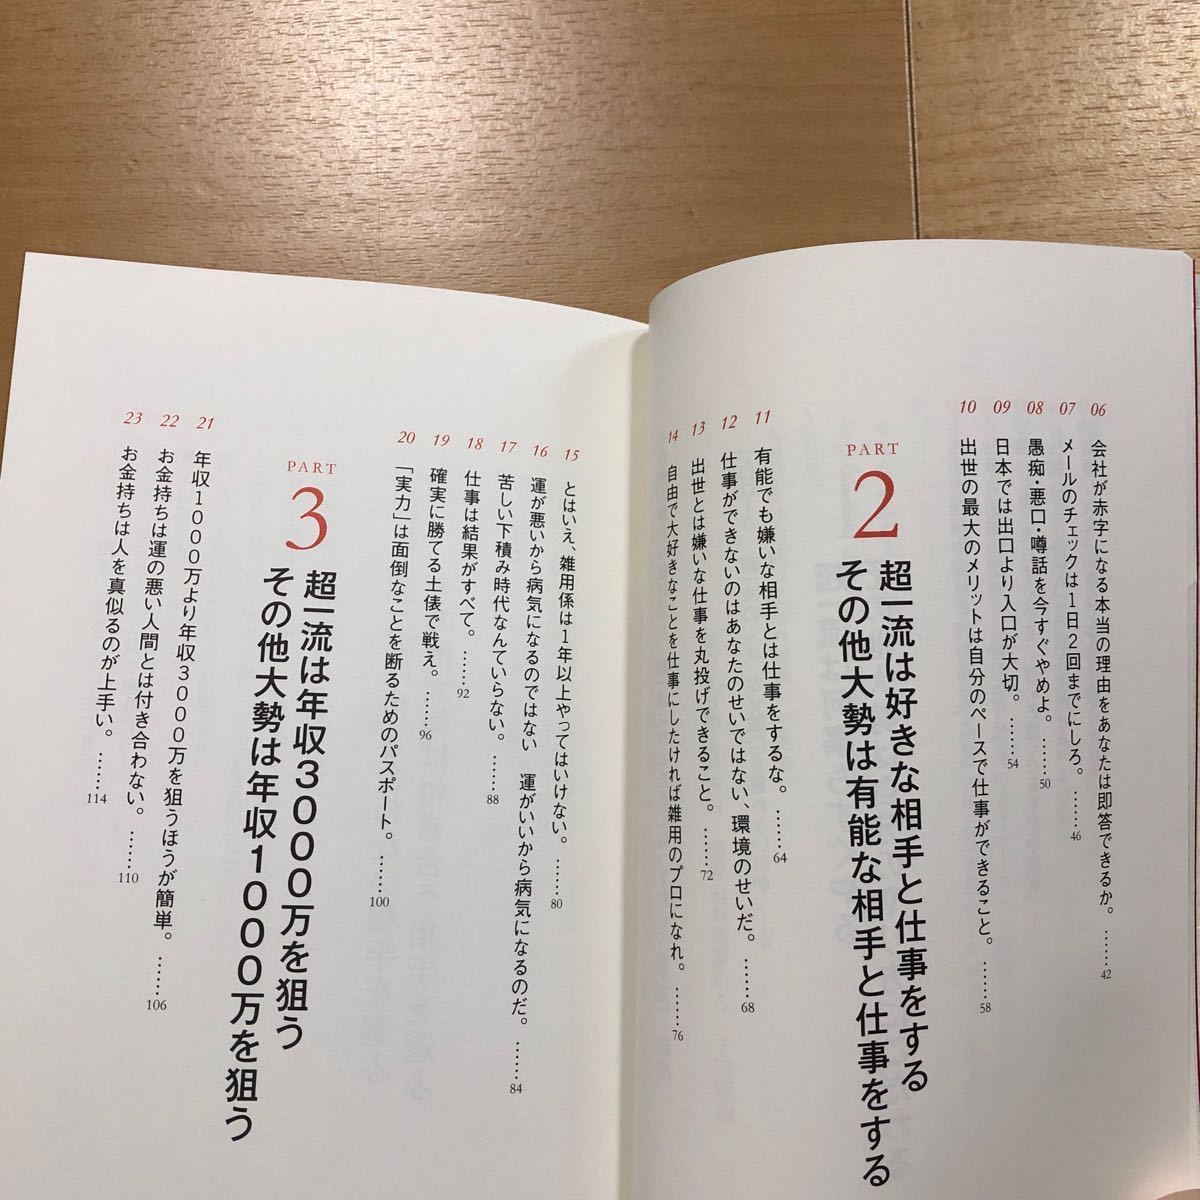 06 会社が赤字になる本当の理由をあなたは即答できるか。……42
07 メールのチェックは1日2回までにしろ。……46
08 愚痴・悪口・噂話を今すぐやめよ。……50
09 日本では出口より入口が大切。……54
10 出世の最大のメリットは自分のペースで仕事ができること。……58
PART
2
超一流は好きな相手と仕事をする
その他大勢は有能な相手と仕事をする
11 有能でも嫌いな相手とは仕事をするな。……64
12 仕事ができないのはあなたのせいではない、環境のせいだ。……68
13 出世とは嫌いな仕事を丸投げできること。……72
14 自由で大好きなことを仕事にしたければ雑用のプロになれ。……76
15 とはいえ、雑用係は1年以上やってはいけない。……80
16 運が悪いから病気になるのではない 運がいいから病気になるのだ。……84
17 苦しい下積み時代なんていらない。……88
18 仕事は結果がすべて。……92
19 確実に勝てる土俵で戦え。……96
20 「実力」は面倒なことを断るためのパスポート。……100
PART
3
超一流は年収3000万を狙う
その他大勢は年収1000万を狙う
21 年収1000万より年収3000万を狙うほうが簡単。……106
22 お金持ちは運の悪い人間とは付き合わない。……110
23 お金持ちは人を真似るのが上手い。……114